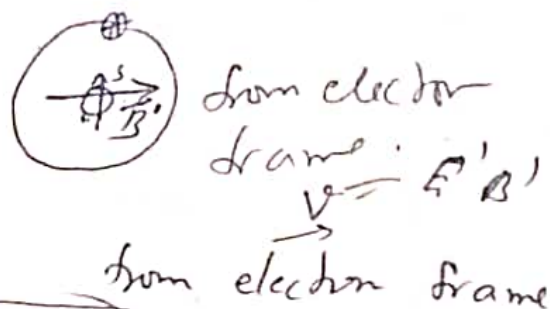 s
B'
from elector
frame.
V = E' B'
from electron frame